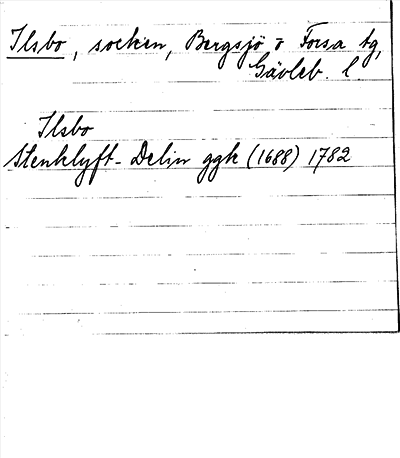 Ilsbo, socken, Bergsjö o Forsa tg,
Gävleb. l.
Ilsbo
Stenklyft- Delin ggk (1688) 1782